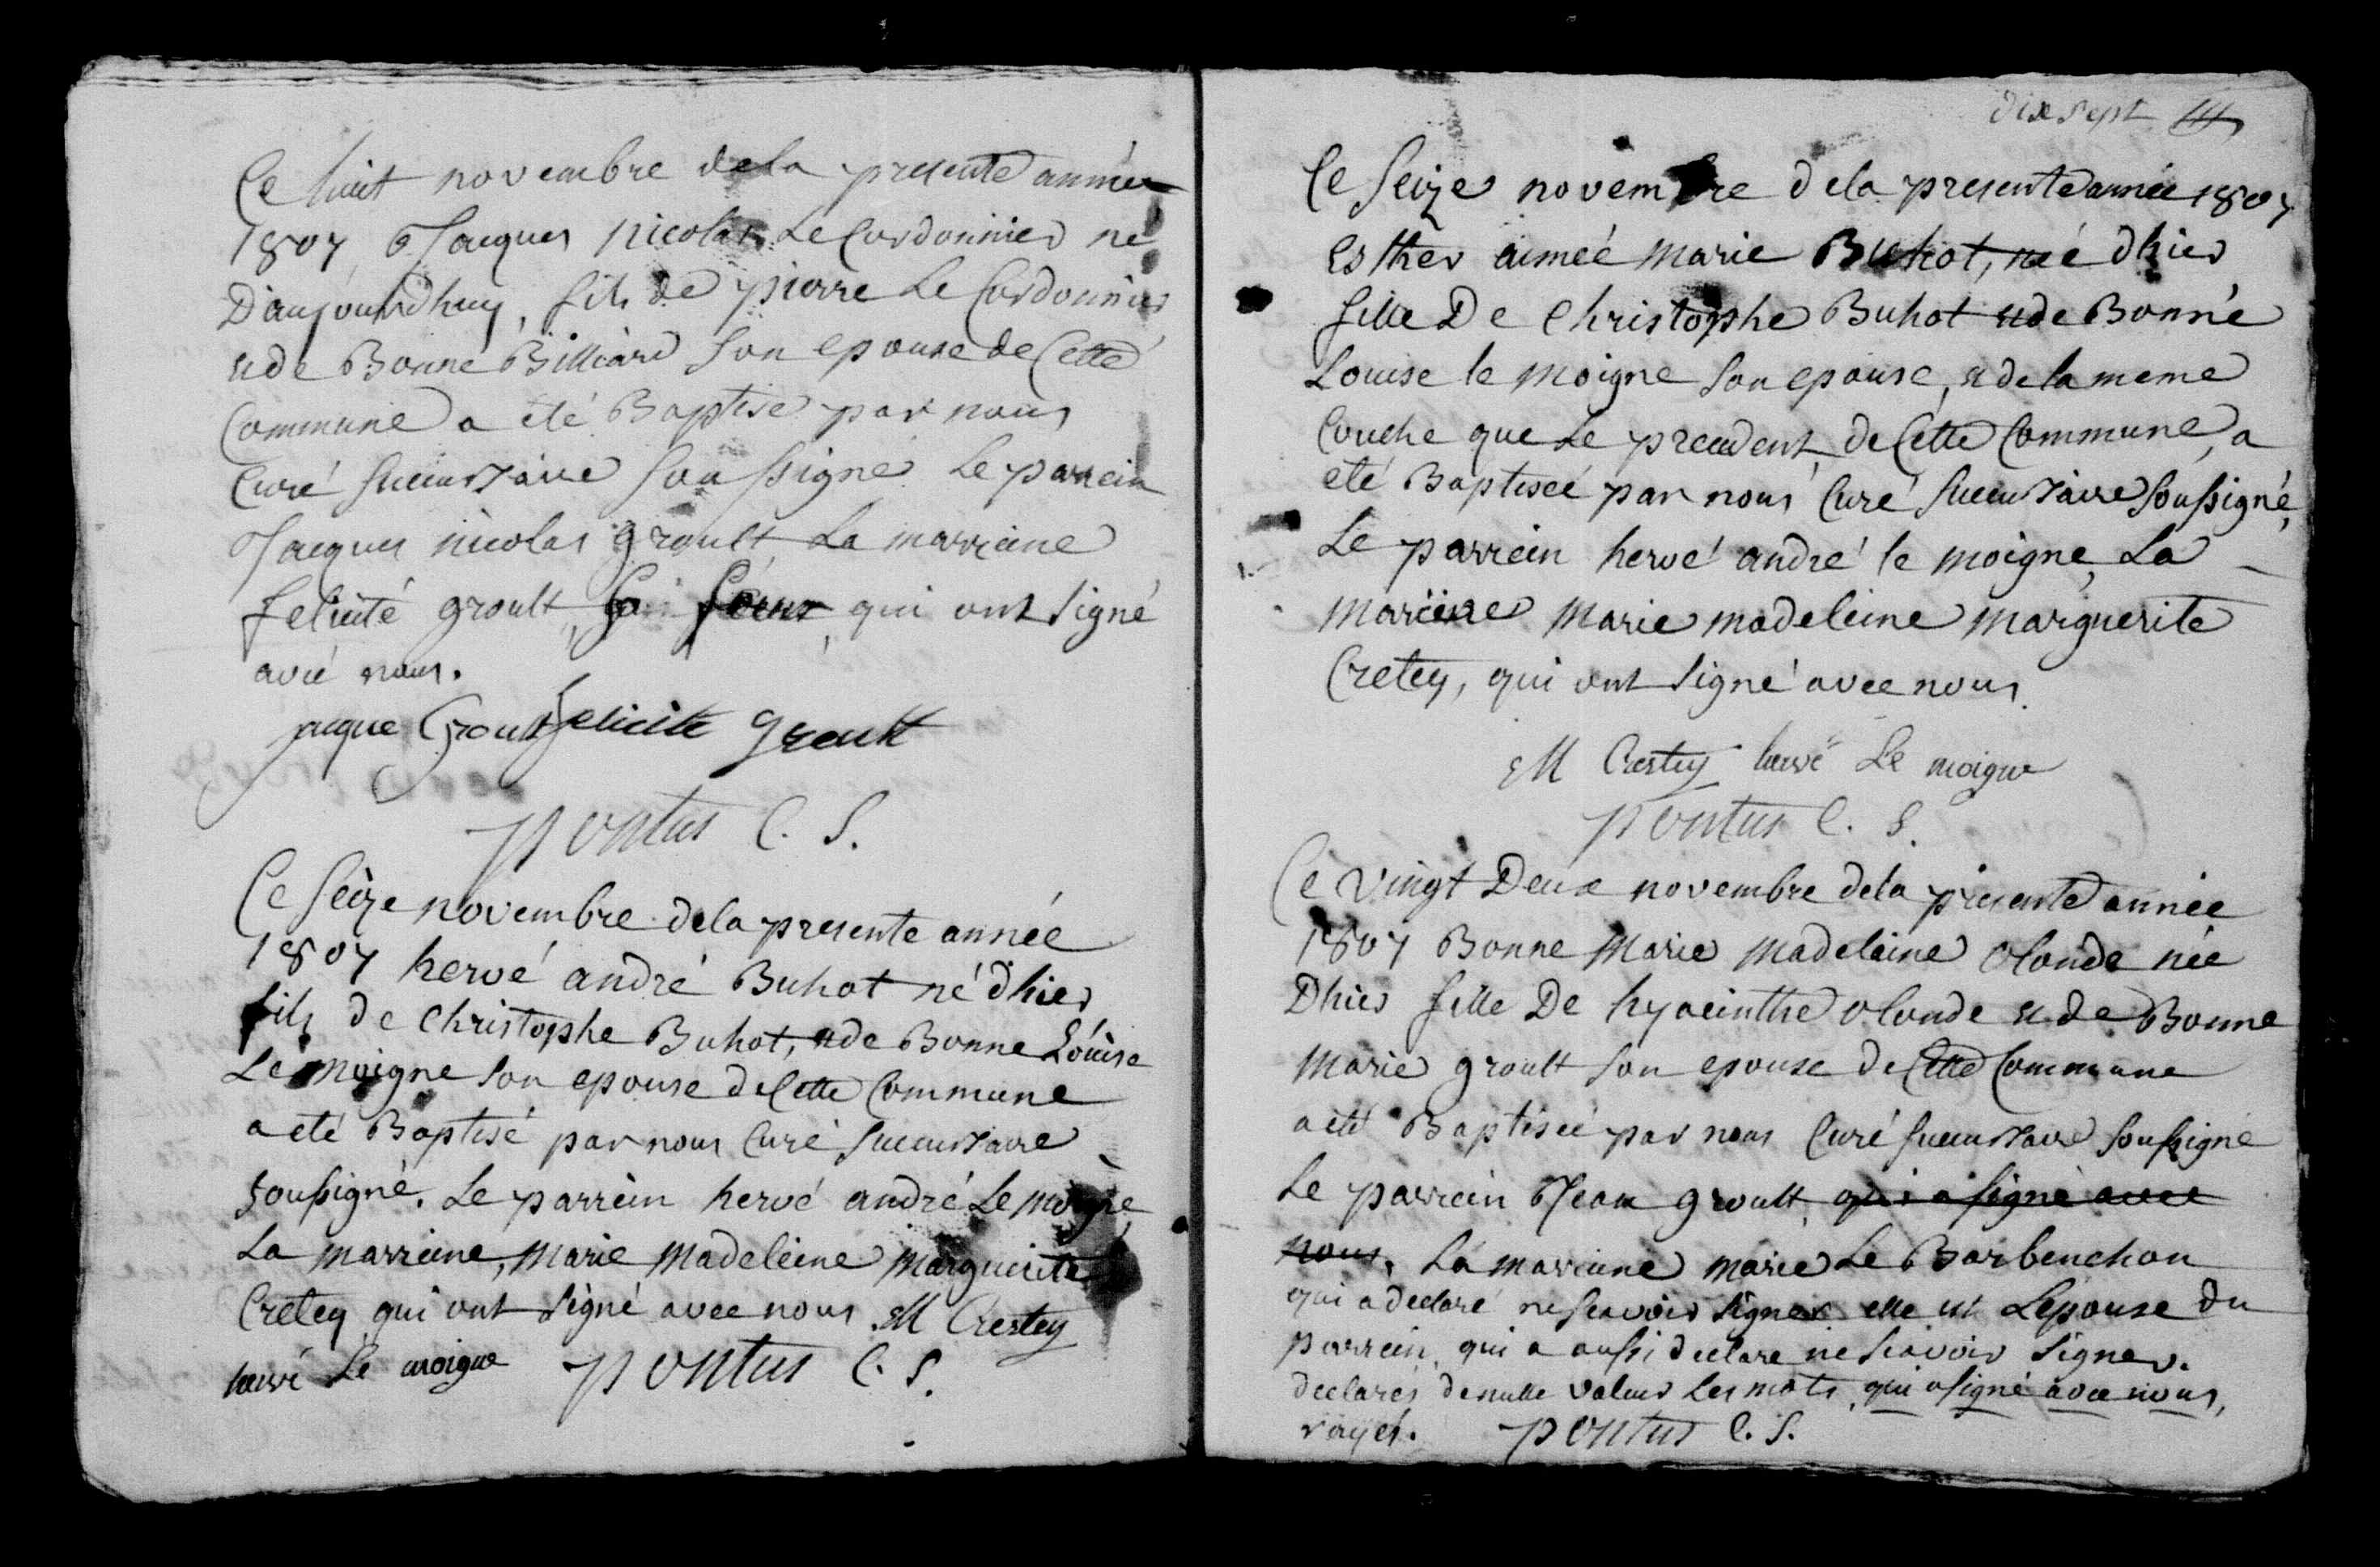 Ce huit novembre dela presente année
1807 Jacques Nicolas Le Cordonnier né
D'aujourdhuy, fils de pierre Le Cordonnier
et de Bonne Billiard son epouse de Cette
Commune a eté Baptisé par nous
Curé succursaire soussigné Le parrein
Jacques nicolas groult, La marreine
felicité groult, sa soeur, qui ont signé
avec nous.
jaque Groult felicite groult
pontus C. S.
Ce seize novembre dela presente année
1807 hervé andré Buhot né dhier
fils de Christophe Buhot, et de Bonne Louise
Le Moigne son epouse de Cette Commune
a eté Baptisé par nous Curé succursaire
soussigné. Le parrein hervé andré Le Moigne,
La marreine, Marie Madeleine Marguerite
Cretey qui ont signé avec nous M Crestey
hervé Le moigne pontus C. S.
dix sept
Ce seize novembre dela presente année 1807
Esther aimeé Marie Buhot, née dhier
fille De Christophe Buhot et de Bonne
Louise le Moigne son epouse, et de la meme
Couche que Le precedent, de Cette Commune, a
eté Baptiseé par nous Curé succursaire soussigné,
Le parrein hervé andré le moigne, La
mareine Marie Madeleine Marguerite
Cretey, qui ont signé avec nous.
M Crestey hervé Le moigne
pontus C. S.
Ce vingt Deux novembre dela presente année
1807 Bonne Marie Madeleine Olonde née
Dhier fille De hyacinthe Olonde et de Bonne
Marie groult son epouse de Cette Commune
a eté Baptiseé par nous Curé succursaire soussigné
Le parrein Jean groult, qui a signé avec
nous, La mareine marie Le Barbenchon
qui a declaré ne scavoir signer elle est Lepouse du
parrein, qui a aussi declare ne scavoir signer.
declarés denulle valeur Les mots, qui a signé avec nous,
rayés. pontus C. S.